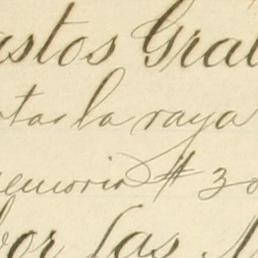 astos Grat
otas la raya
memoria # 30
bor las